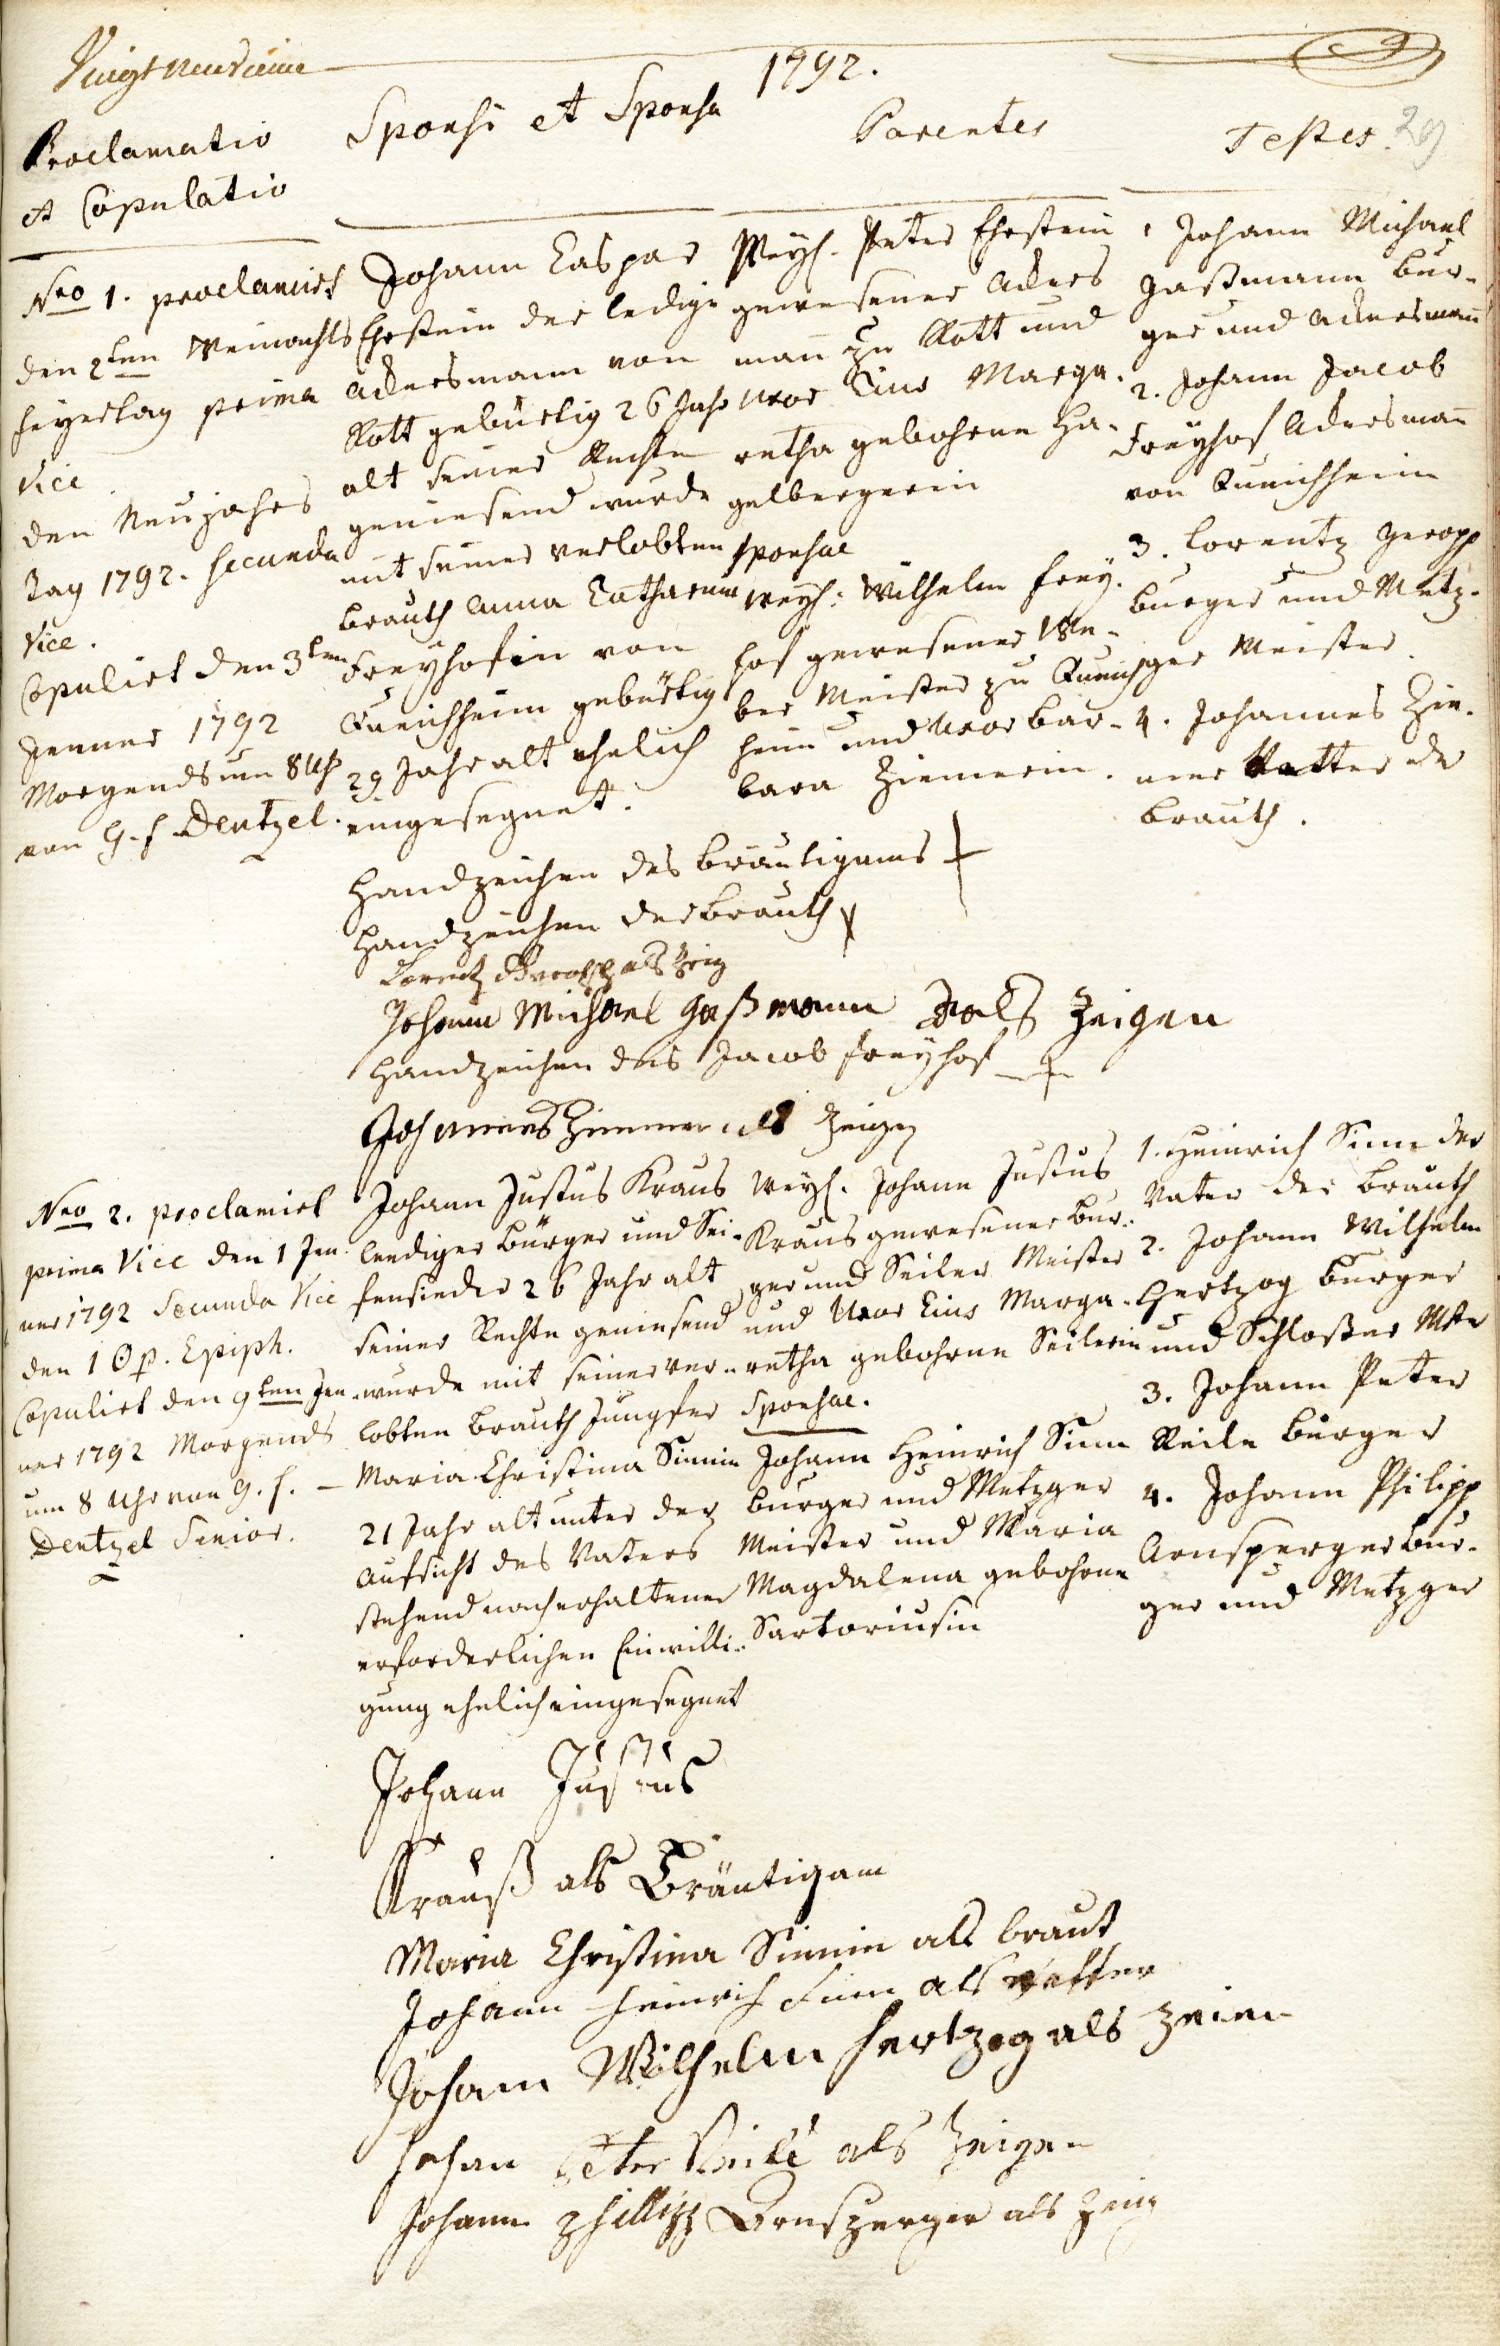 Vingt neuvieme
1792.
29
Proclamatio
et Copulatio
Sponsi et Sponsa
Parentes
Testes.
Nro 1. proclamirt
den 2ten Weinachts
feyertag prima
Vice
den Neujahrs
Tag 1792. secunda
Vice.
Copulirt den 3ten
Jenner 1792
Morgends um 8 Uhr
von G. f. Dentzel.
Johann Caspar
Ehrstein der ledige
Ackersmann von
Rott gebürtig 26 Jahr
alt seiner Rechte
geniesend wurde
mit seiner verlobten
Brauth Anna Catharina
Freyhofin von
Queichheim gebürtig
29 Jahr alt ehelich
eingesegnet.
Weyl. Peter Ehrstein
gewesener Ackers
mañ zu Rott und
Uxor Eius Marga-
retha gebohrne Ha-
gelbergerin
sponsae
Weyl: Wilhelm Frey-
hof gewesener We-
ber Meister zu Queich
heim und Uxor Bar-
bara Ziemerin.
1 Johann Michael
Gaßmann Bur-
ger und Ackersmañ
2. Johann Jacob
Freyhof Ackersmañ
von Queichheim
3. Lorentz Gropp
Burger und Metz-
ger Meister
4. Johannes Zie-
mer Vatter der
Brauth.
Handzeichen des Bräutigams +
Handzeichen der Brauth x
Lorentz als Zeig
Johann Michael Gaßmann als Zeigen
Handzeichen des Jacob Freyhof +
Johannes Zimmer als Zeigen
Nro 2. proclamirt
prima Vice den 1 Jen-
ner 1792 Secunda Vice
den 1 Θ p. Epiph.
Copulirt den 9ten Jen-
ner 1792 Morgends
um 8 Uhr von G. f. –
Dentzel Senior.
Johann Justus Kraus
lediger Bürger und Sei-
fensieder 26 Jahr alt
seiner Rechte geniesend
wurde mit seiner ver-
lobten Brauth Jungfer
Maria Christina Sinnin
21 Jahr alt unter der
Aufsicht des Vaters
stehend nach erhaltener
erforderlichen Einwilli-
gung ehelich eingesegnet
Weyl. Johann Justus
Kraus gewesener Bur-
ger und Seiler Meister
und Uxor Eius Marga-
retha gebohrne Seilerin
Sponsae.
Johann Heinrich Sinn
Burger und Metzger
Meister und Maria
Magdalena gebohrne
Sartoriusin
1. Heinrich Sinn der
Vater der Brauth
2. Johann Wilhelm
Hertzog Burger
und Schloßer Mstr
3. Johann Peter
Reile Bürger
4. Johann Philipp
Arnsperger Bur-
ger und Metzger
Johann Justus
Krauß als Bräutigam
Maria Christina Sinnin als braut
Johann Heinrich Sinn als Vatter
Johann Wilhelm Hertzog als Zeien
Johan Peter Reile als Zeigen
Johann Phillipp Arnsperger als Zeig